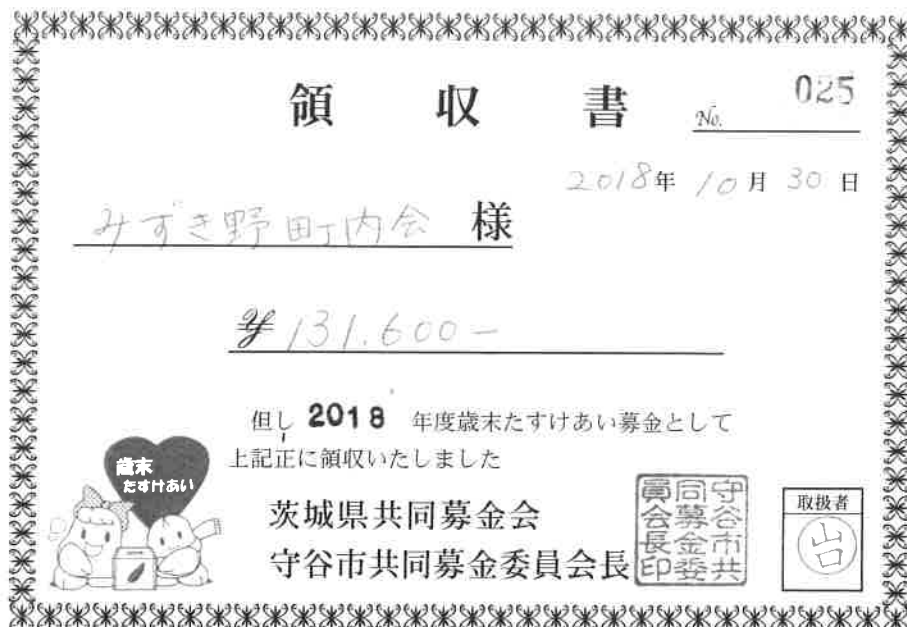 領収書
No. 025
2018年10月30日
みずき野町内会 様
¥131.600-
但し 2018 年度歳末たすけあい募金として
上記正に領収いたしました
歳末
たすけあい
茨城県共同募金会
守谷市共同募金委員会長
守谷市共同募金委員会長印
取扱者